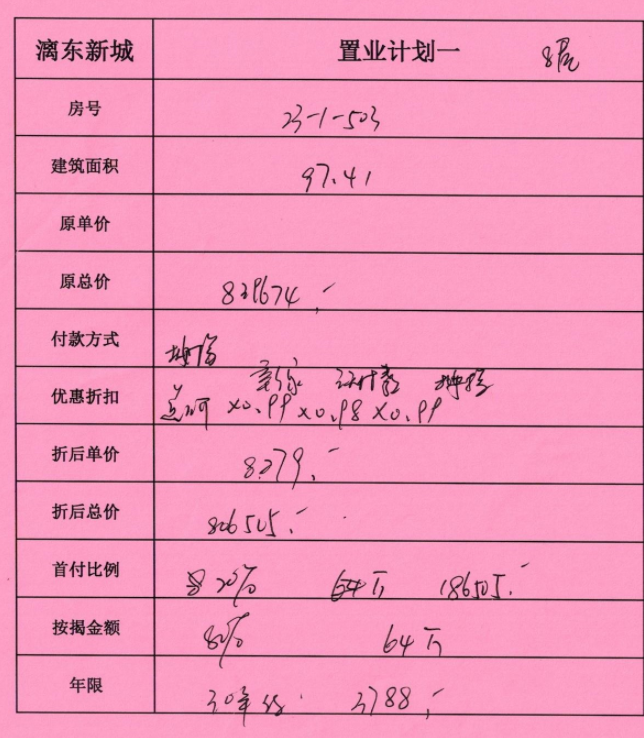 漓东新城 置业计划一 8层
房号 23-1-503
建筑面积 97.41
原单价
原总价 839674.-
付款方式 按揭
优惠折扣 ×0.99 ×0.98 ×0.99
折后单价 8279.-
折后总价 806505.-
首付比例 20% 64万 186505.-
按揭金额 80% 64万
年限 30年 3788.-